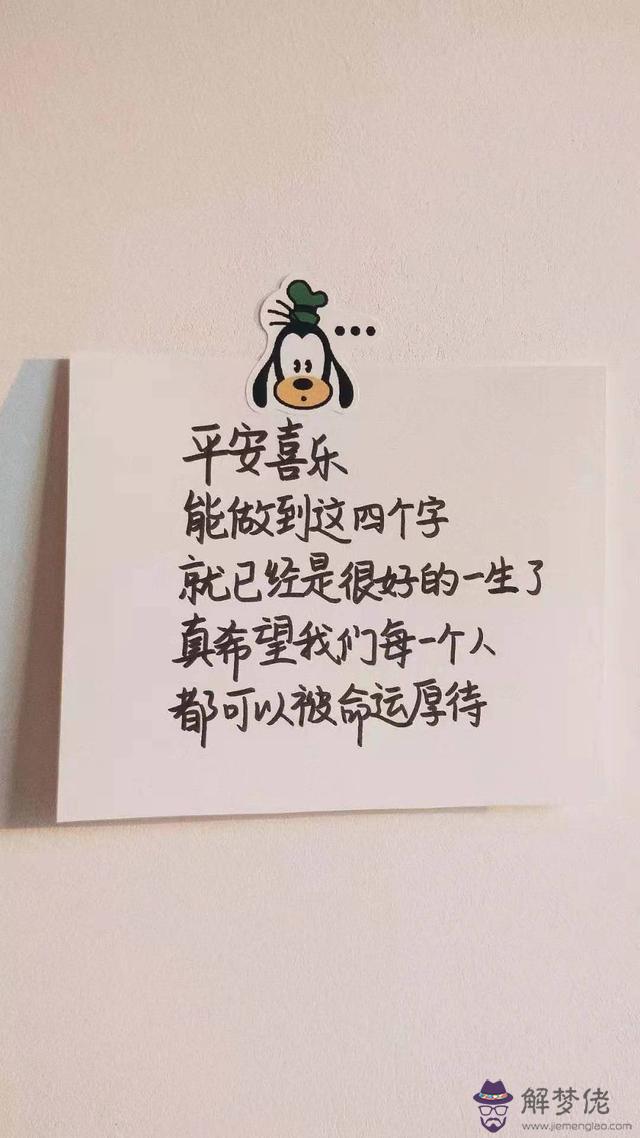 平安喜乐
能做到这四个字
就已经是很好的一生了
真希望我们每一个人
都可以被命运厚待
解梦佬
www.jiemenglao.com